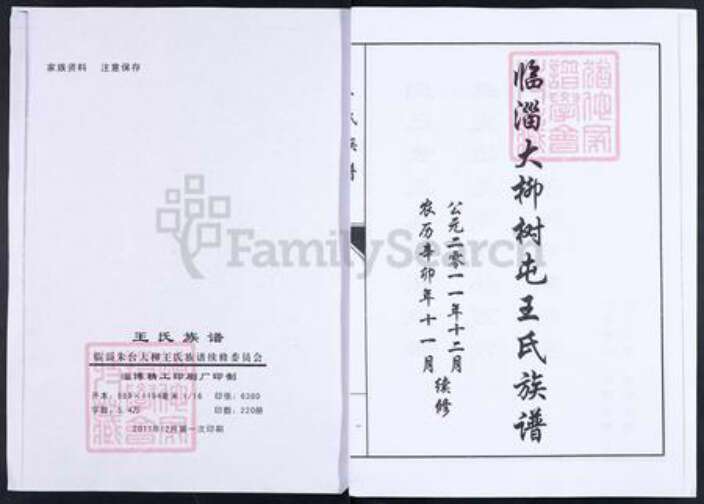 家族资料 注意保存
王氏族谱
临淄朱台大柳王氏族谱续修委员会
淄博精工印刷厂印制
开本：889×1194毫米 1/16 印张：6380
字数：5.4万 印数：220册
2011年12月第一次印刷
FamilySearch
氏族谱
临淄大柳树屯王氏族谱
公元二零一一年十二月
农历辛卯年十一月
续修